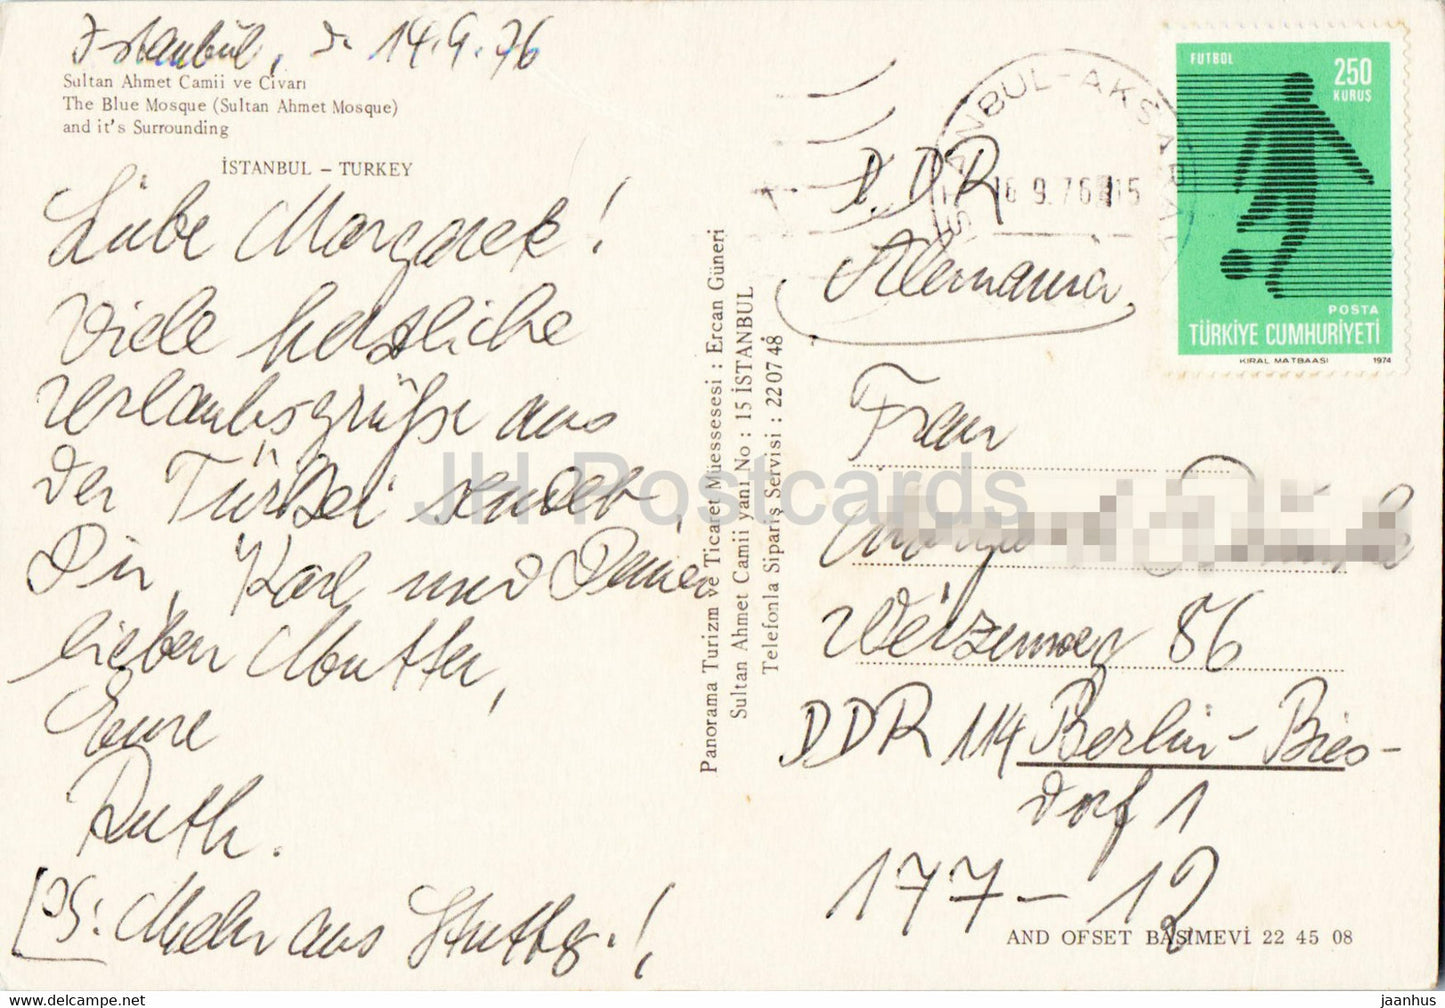 Istanbül, d. 14.9.76
Sultan Ahmet Camii ve Civarı
The Blue Mosque (Sultan Ahmet Mosque)
and it's Surrounding
İSTANBUL – TURKEY
Liebe Margarete!
Viele herzliche
Urlaubsgrüße aus
der Türkei sendet
Dir, Karl und Deiner
lieben Mutter,
Eure
Ruth.
[PS: Mehr aus Stuttg.!
Panorama Turizm ve Ticaret Müessesesi : Ercan Güneri
Sultan Ahmet Camii yanı No : 15 İSTANBUL
Telefonla Sipariş Servisi : 22 07 48
İSTANBUL-AKSARAY
16.9.76 15
FUTBOL
250
KURUŞ
POSTA
TÜRKİYE CUMHURİYETİ
KIRAL MATBAASI 1974
D.D.R
Alemania
Frau
Weizenweg 86
DDR 114 Berlin-Bies-
dorf 1
177-12
AND OFSET BASIMEVİ 22 45 08
JH Postcards
jaanhus